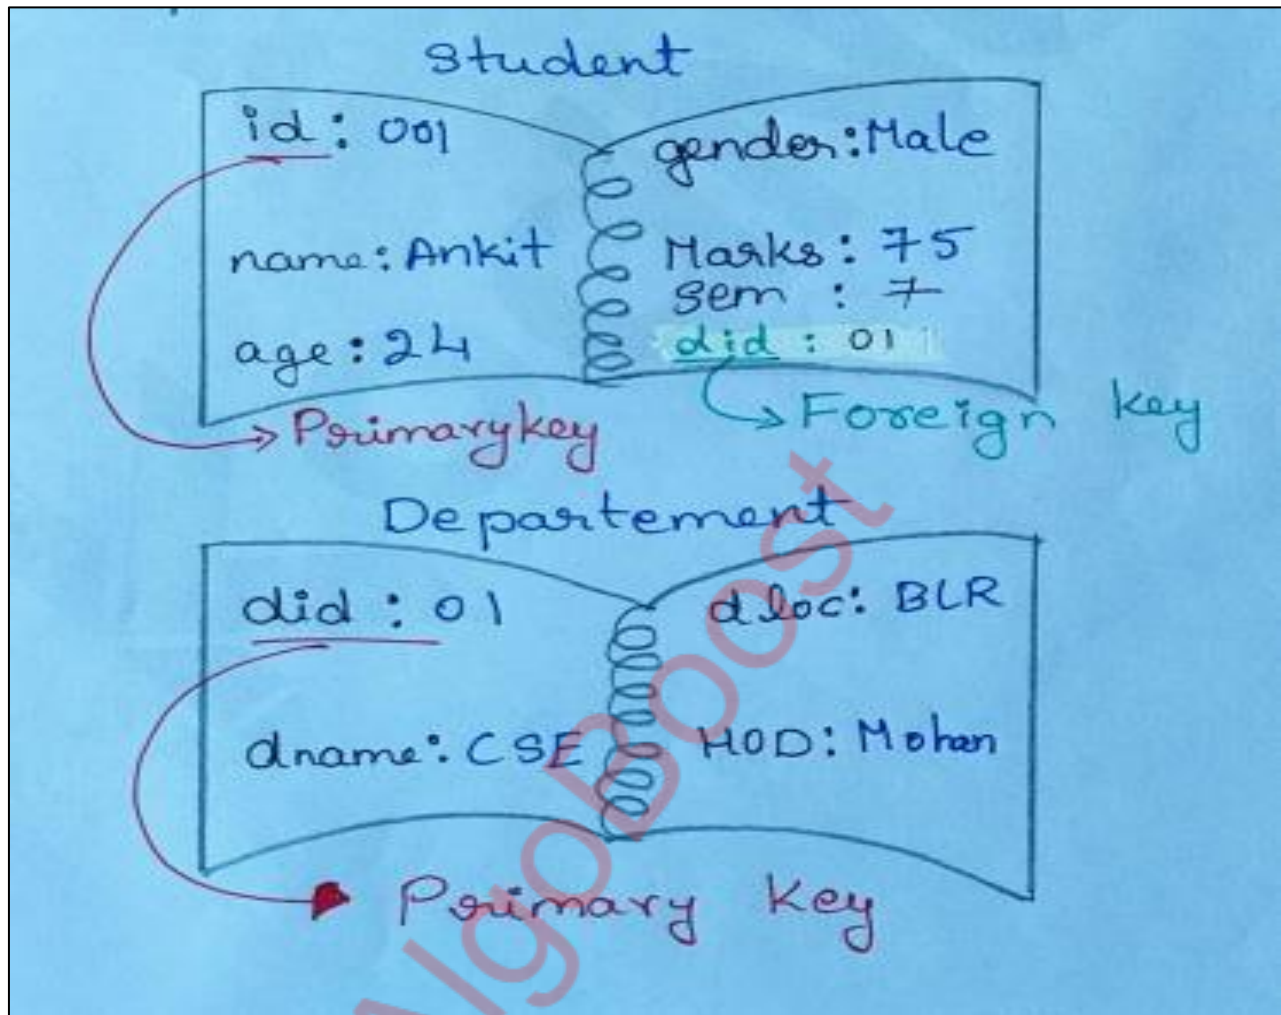 Student
id: 001
name: Ankit
age: 24
gender: Male
Marks: 75
Sem : 7
did : 01
Primary key
Foreign key
Departement
did : 01
dname: CSE
dloc: BLR
HOD: Mohan
Primary key
AlgoBoost